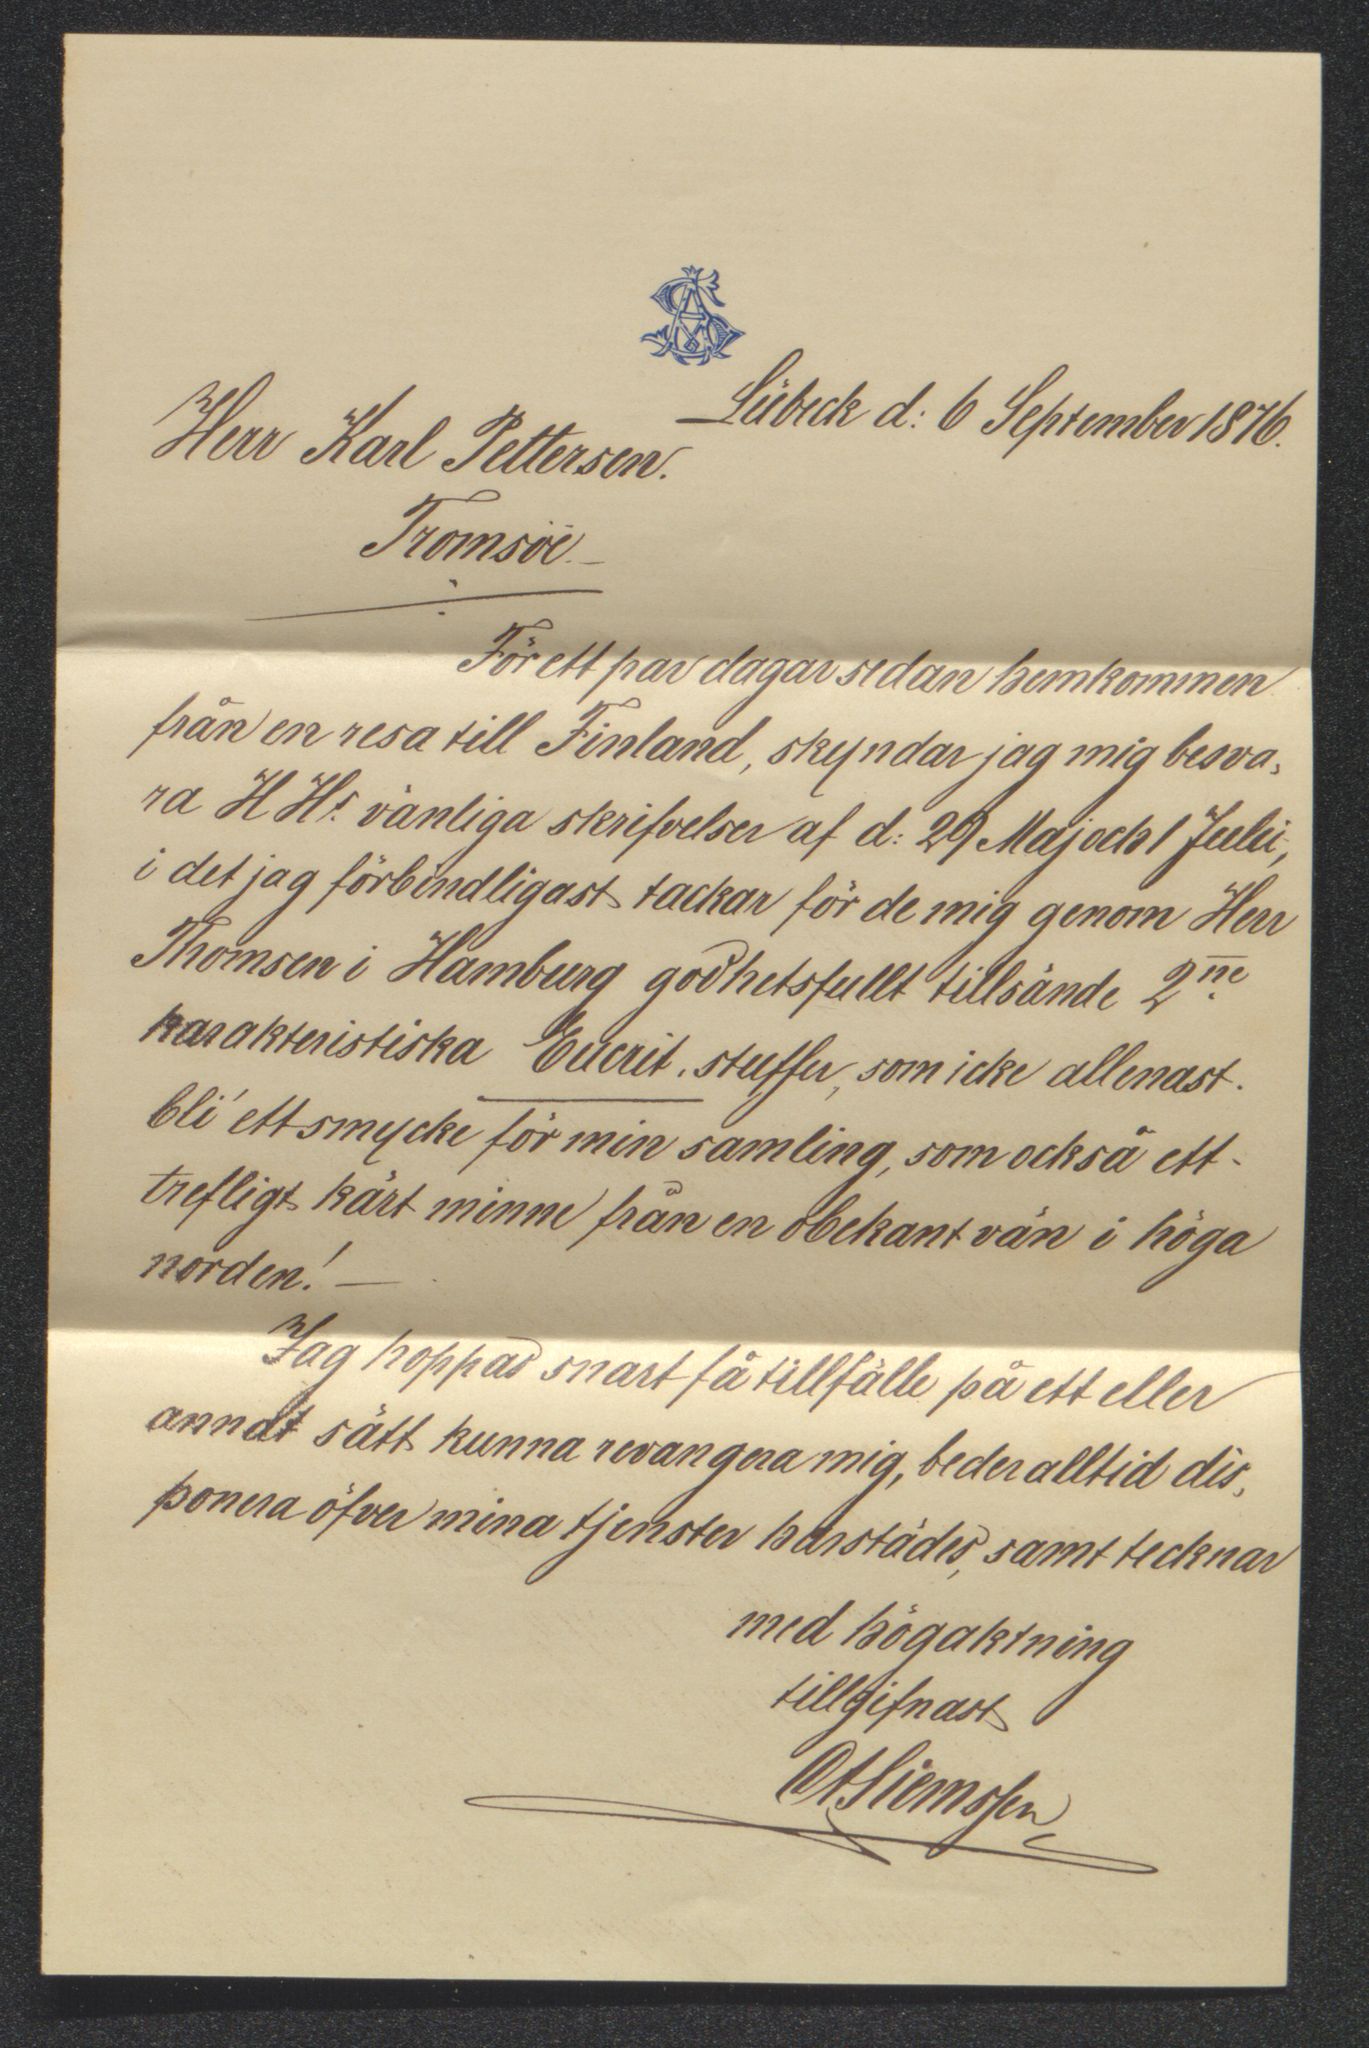 Lübeck d: 6 September 1876.
Herr Karl Pettersen.
Tromsöe.—
För ett par dagar sedan hemkommen
från en resa till Finland, skyndar jag mig besva-
ra H Hs. vänliga skrifvelser af d: 29 Maj och 1 Juli,
i det jag förbindligast tackar för de mig genom Herr
Thomsen i Hamburg godhetsfullt tillsände 2ne
karakteristiska Eucrit-stuffer, som icke allenast
bli ett smycke för min samling, som också ett
trefligt kärt minne från en obekant vän i höga
norden! —
Jag hoppas snart få tillfälle på ett eller
annat sätt kunna revangera mig, beder alltid dis-
ponera öfver mina tjenster härstädes, samt tecknar
med högaktning
tillgifnast
Siemssen